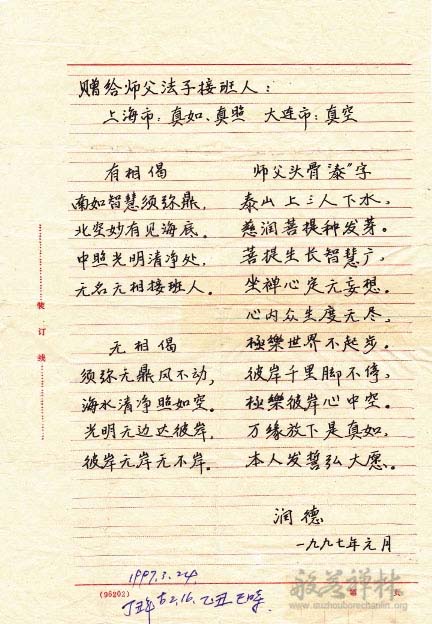 赠给师父法子接班人：
上海市：真如、真照 大连市：真空
有相偈
南如智慧须弥鼎，
北空妙有见海底。
中照光明清净处，
元名元相接班人。
无相偈
须弥元鼎风不动，
海水清净照如空。
光明元边达彼岸，
彼岸元岸无不岸。
师父头骨“泰”字
泰山上三人下水，
慈润菩提种发芽。
菩提生长智慧广，
坐禅心定元妄想。
心内众生度元尽，
極樂世界不起步。
彼岸千里脚不停，
極樂彼岸心中空。
万缘放下是真如，
本人发誓弘大愿。
润德
一九九七年元月
装订线
(96202)
第 页
1997.3.24
丁丑年 2.16. 乙丑
般若禅林
www.suzhouborechanlin.org